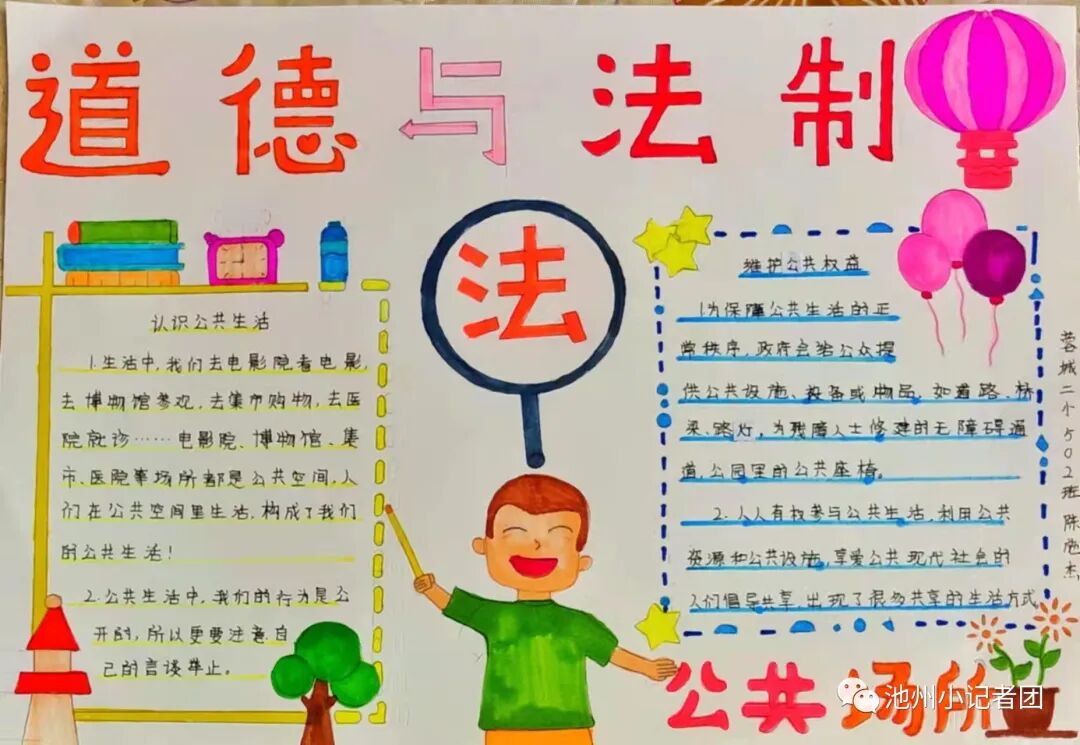 道德与法制
法
认识公共生活
1.生活中,我们去电影院看电影,
去博物馆参观,去集市购物,去医
院就诊……电影院、博物馆、集
市、医院等场所都是公共空间,人
们在公共空间里生活,构成了我们
的公共生活!
2.公共生活中,我们的行为是公
开的,所以更要注意自
己的言谈举止。
维护公共权益
1.为保障公共生活的正
常秩序,政府会给公众提
供公共设施、设备或物品,如道路、桥
梁、路灯,为残障人士修建的无障碍通
道,公园里的公共座椅。
2.人人有权参与公共生活,利用公共
资源和公共设施,享受公共现代社会的
人们倡导共享,出现了很多共享的生活方式
蓉城二小502班 陈 杰
公共场所
池州小记者团